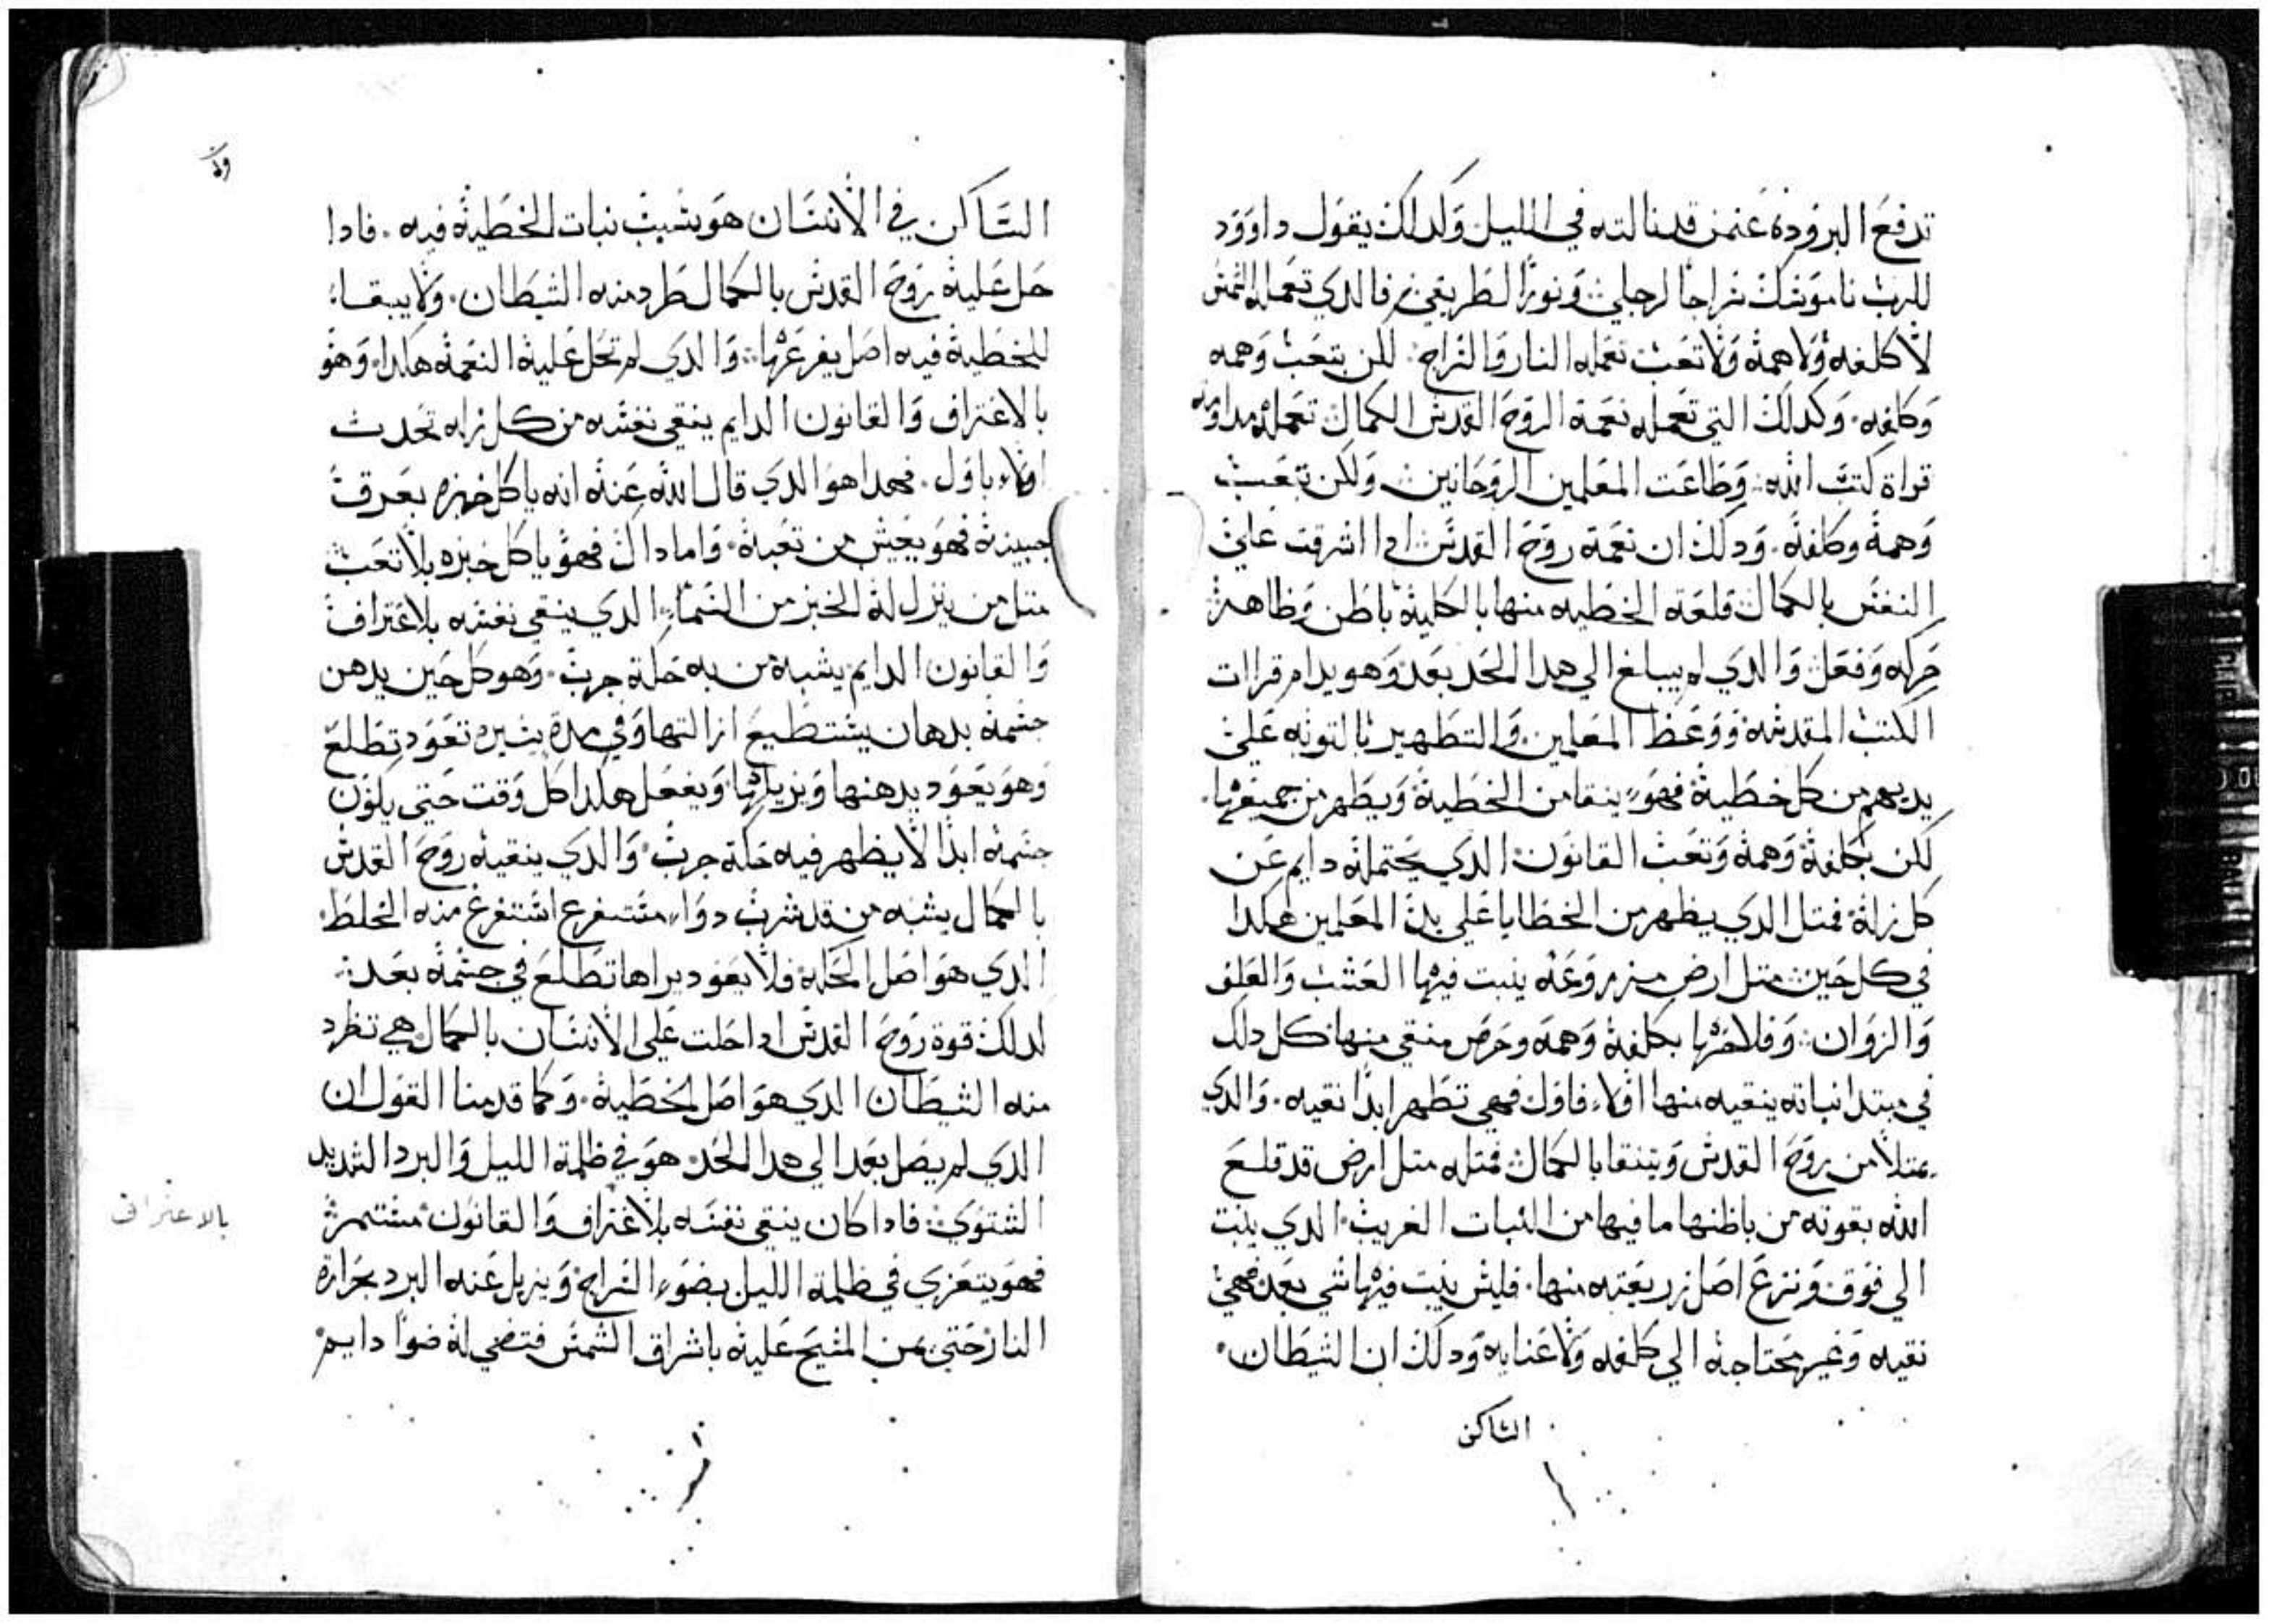 تدفع البروده عنمن قدنالته في الليل وكدلك يقول داوود
للرب ناموسك سراجا لرجلي ونورا لطريقي فالدي تعمله الشمس
لا كلفه ولا همة ولا تعب تعمله النار والسراج لكن بتعب وهمه
وكلفه وكدلك التي تعمله نعمة الروح القدس الكمال تعمله مداومه
قراة كتب الله وطاعت المعلمين الروحانيين ولكن بتعب
وهمة وكلفة ودلك ان نعمة روح القدس ادا اشرقت علي
النفس بالكمال قلعة الخطيه منها بالكلية باطن وظاهر
حركه وفعل والدي لم يبلغ الي هدا الحد بعد وهو يدام قراات
الكتب المقدسة ووعظ المعلمين والتطهير بالتوبه علي
يديهم من كل خطية فهو ينقا من الخطية ويطهر من جميعها
لكن بكلفة وهمة وتعب القانون الدي يحتمله دايم عن
كل زلة فمتل الدي يظهر من الخطايا علي يد المعلمين هكدا
في كل حين متل ارض مزروعه ينبت فيها العشب والعلف
والزوان وفلاحها بكلفة وهمه وحرص منقي منها كل دلك
في مبتدا نباته ينقيه منها اولا فاول فهي تظهر ابدا نقيه والدي
يمتلا من روح القدس ويتنقا بالكمال فمتله متل ارض قد قلع
الله بقوته من باطنها ما فيها من النبات الغريب الدي ينبت
الي فوق ونزع اصل زريعته منها فليس ينبت فيها شي بعد فهي
نقيه وغير محتاجة الي كلفه ولا عنايه ودلك ان الشيطان
الساكن
الساكن في الانسان هو سبب نبات الخطية فيه فادا
حل علية روح القدس بالكمال طرد منه الشيطان ولا يبقا
للخطية فيه اصل يفرعها والدي لم تحل علية النعمة هكدا وهو
بالاعتراف والقانون الدايم ينقي نفسه من كل زله تحدث
اولا باول فهدا هو الدي قال الله عنه انه ياكل خبزه بعرق
جبينة فهو يعيش من تعبة واما داك فهو ياكل خبزه بلا تعب
متل من ينزل له الخبز من السماء الدي ينقي نفسه بلاعتراف
والقانون الدايم يشبه من به حكة جرب وهو كل حين يدهن
جسمة بدهان يستطيع ازالتها وفي مدة يسيره تعود تطلع
وهو يعود يدهنها ويزيلها ويفعل هكدا كل وقت حتي يكون
جسمه ابدا لا يظهر فيه حكة جرب والدي ينقيه روح القدس
بالكمال يشبه من قد شرب دواء مستفرغ استفرغ منه الخلط
الدي هو اصل الحكه فلا يعود يراها تطلع في جسمة بعد
لدلك قوة روح القدس ادا حلت علي الانسان بالكمال هي تطرد
منه الشيطان الدي هو اصل الخطية وكما قدمنا القول ان
الدي لم يصل بعد الي هدا الحد هو في ظلمة الليل والبرد الشديد
الشتوي فادا كان ينقي نفسه بلاعتراف والقانون مستمر
بالاعتراف
فهو يتعزي في ظلمة الليل بضوء السراج ويزيل عنه البرد بحرارة
النار حتي يمن المسيح علية باشراق الشمس فتضي له ضوا دايم